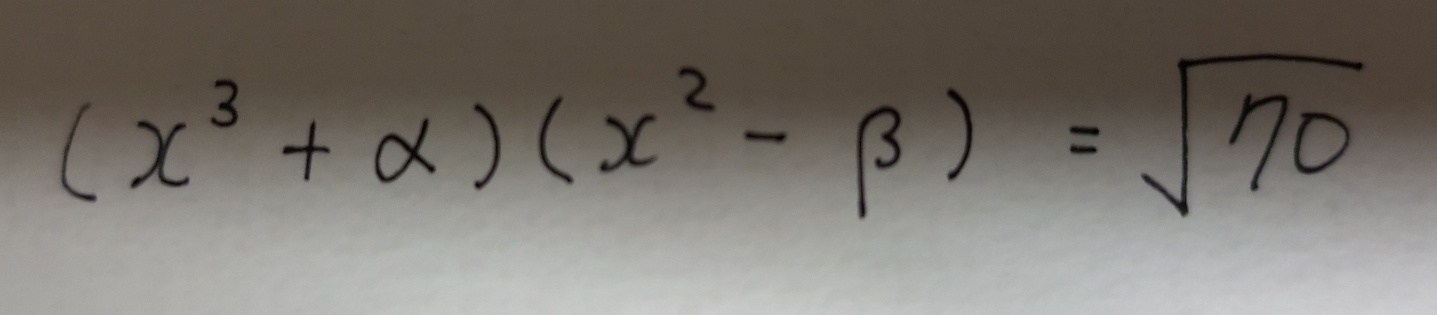 (x³ + α)(x² - β) = √70